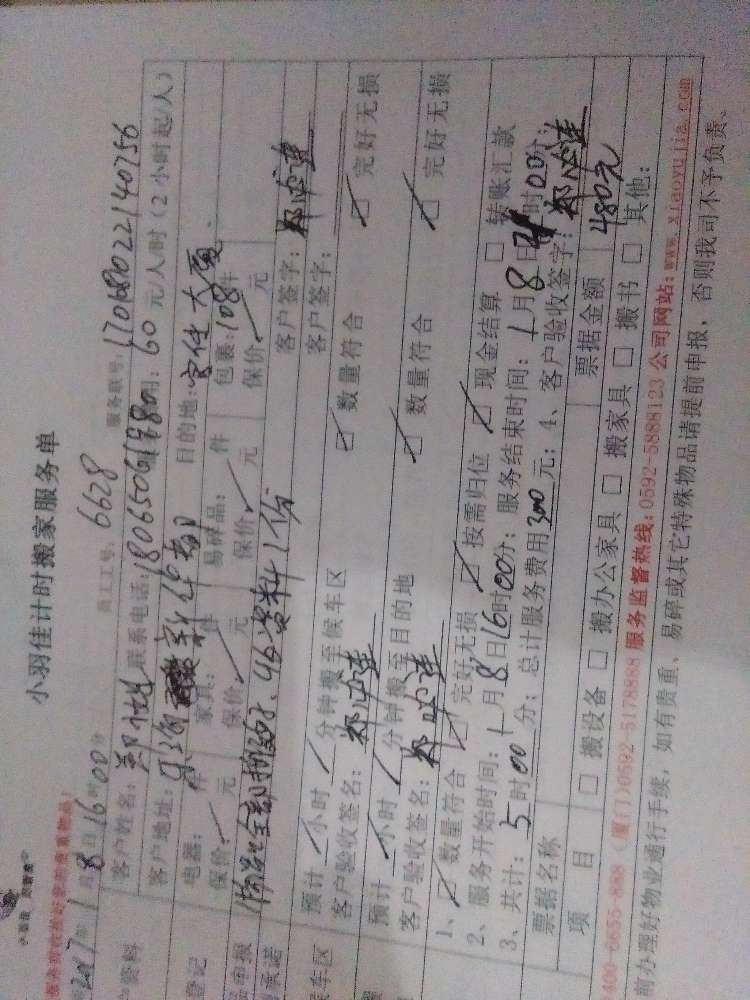 小羽佳计时搬家服务单
员工工号: 6628 服务联号: 17068022140756
2017年1月8日16时00分
客户姓名: 联系电话: 18065061980 用: 60元/人/时(2小时起/人)
客户地址: 新华都 目的地: 大厦
电器: 件 家具: 件 易碎品: 件 包裹: 108件
保价: 元 保价: 元 保价: 元 保价: 元
资料1份 客户签字:
预计 小时 分钟搬至候车区 客户签字:
客户验收签名: 数量符合 完好无损
预计 小时 分钟搬至目的地
客户验收签名: 数量符合 完好无损
1、 数量符合 完好无损 按需归位 现金结算 转账汇款
2、服务开始时间: 1月8日16时00分; 服务结束时间: 1月8日 时00分;
3、共计: 5时00分; 总计服务费用300元; 4、客户验收签字:
票据名称 票据金额 480元
项目 搬设备 搬办公家具 搬家具 搬书 其他:
400-6655-888 (厦门)0592-5178888 服务监督热线: 0592-5888123 公司网站: www.xiaoyujia.com
前办理好物业通行手续, 如有贵重、易碎或其它特殊物品请提前申报, 否则我司不予负责。